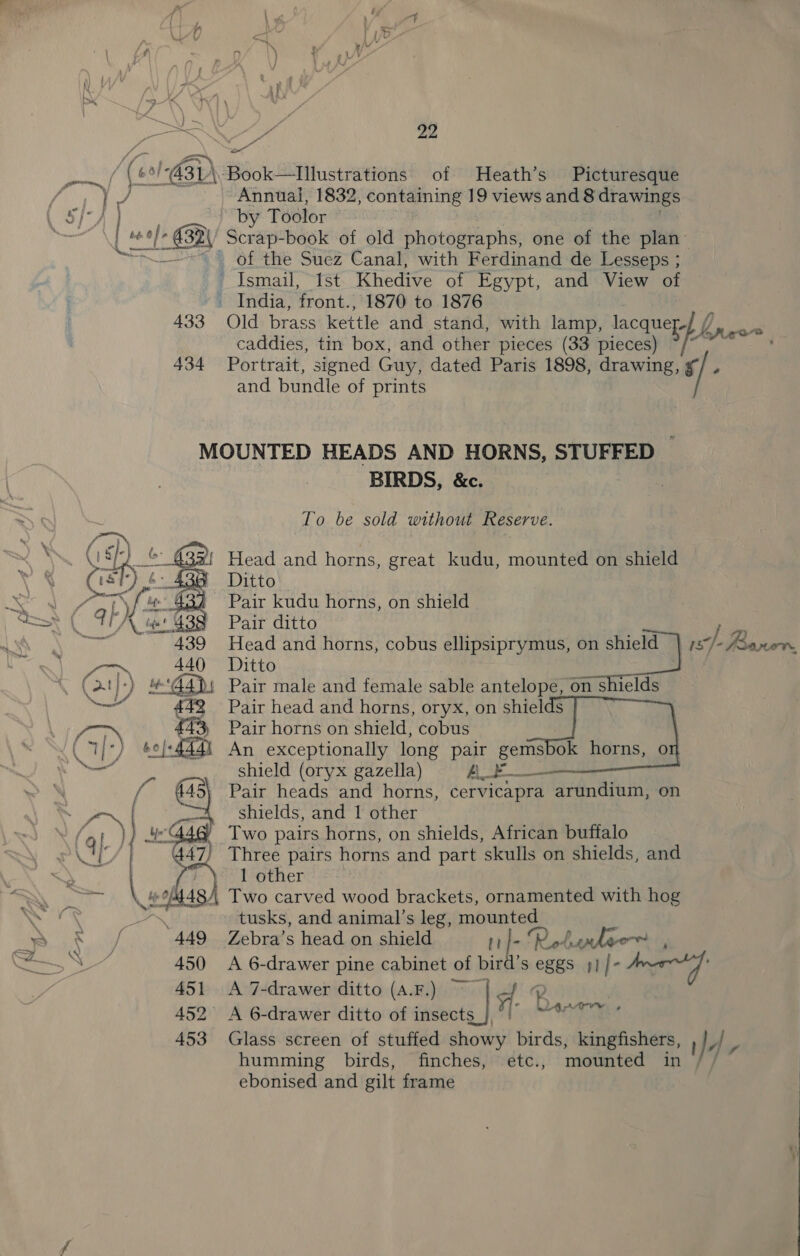 22
431 Book—Illustrations of Heath's Picturesque
Annual, 1832, containing 19 views and 8 drawings
by Toolor
432 Scrap-book of old photographs, one of the plan
of the Suez Canal, with Ferdinand de Lesseps ;
Ismail, Ist Khedive of Egypt, and View of
India, front., 1870 to 1876
433 Old brass kettle and stand, with lamp, lacquer
caddies, tin box, and other pieces (33 pieces)
434 Portrait, signed Guy, dated Paris 1898, drawing,
and bundle of prints
MOUNTED HEADS AND HORNS, STUFFED
BIRDS, &c.
To be sold without Reserve.
435 Head and horns, great kudu, mounted on shield
436 Ditto
437 Pair kudu horns, on shield
438 Pair ditto
439 Head and horns, cobus ellipsiprymus, on shield 15/- Baron
440 Ditto
441 Pair male and female sable antelope, on shields
442 Pair head and horns, oryx, on shields
443 Pair horns on shield, cobus
444 An exceptionally long pair gemsbok horns, on
shield (oryx gazella)
445 Pair heads and horns, cervicapra arundium, on
shields, and 1 other
446 Two pairs horns, on shields, African buffalo
447 Three pairs horns and part skulls on shields, and
1 other
448 Two carved wood brackets, ornamented with hog
tusks, and animal's leg, mounted
449 Zebra's head on shield 11/-
450 A 6-drawer pine cabinet of bird's eggs 11/-
451 A 7-drawer ditto (A.F.)
452 A 6-drawer ditto of insects
453 Glass screen of stuffed showy birds, kingfishers,
humming birds, finches, etc., mounted in
ebonised and gilt frame